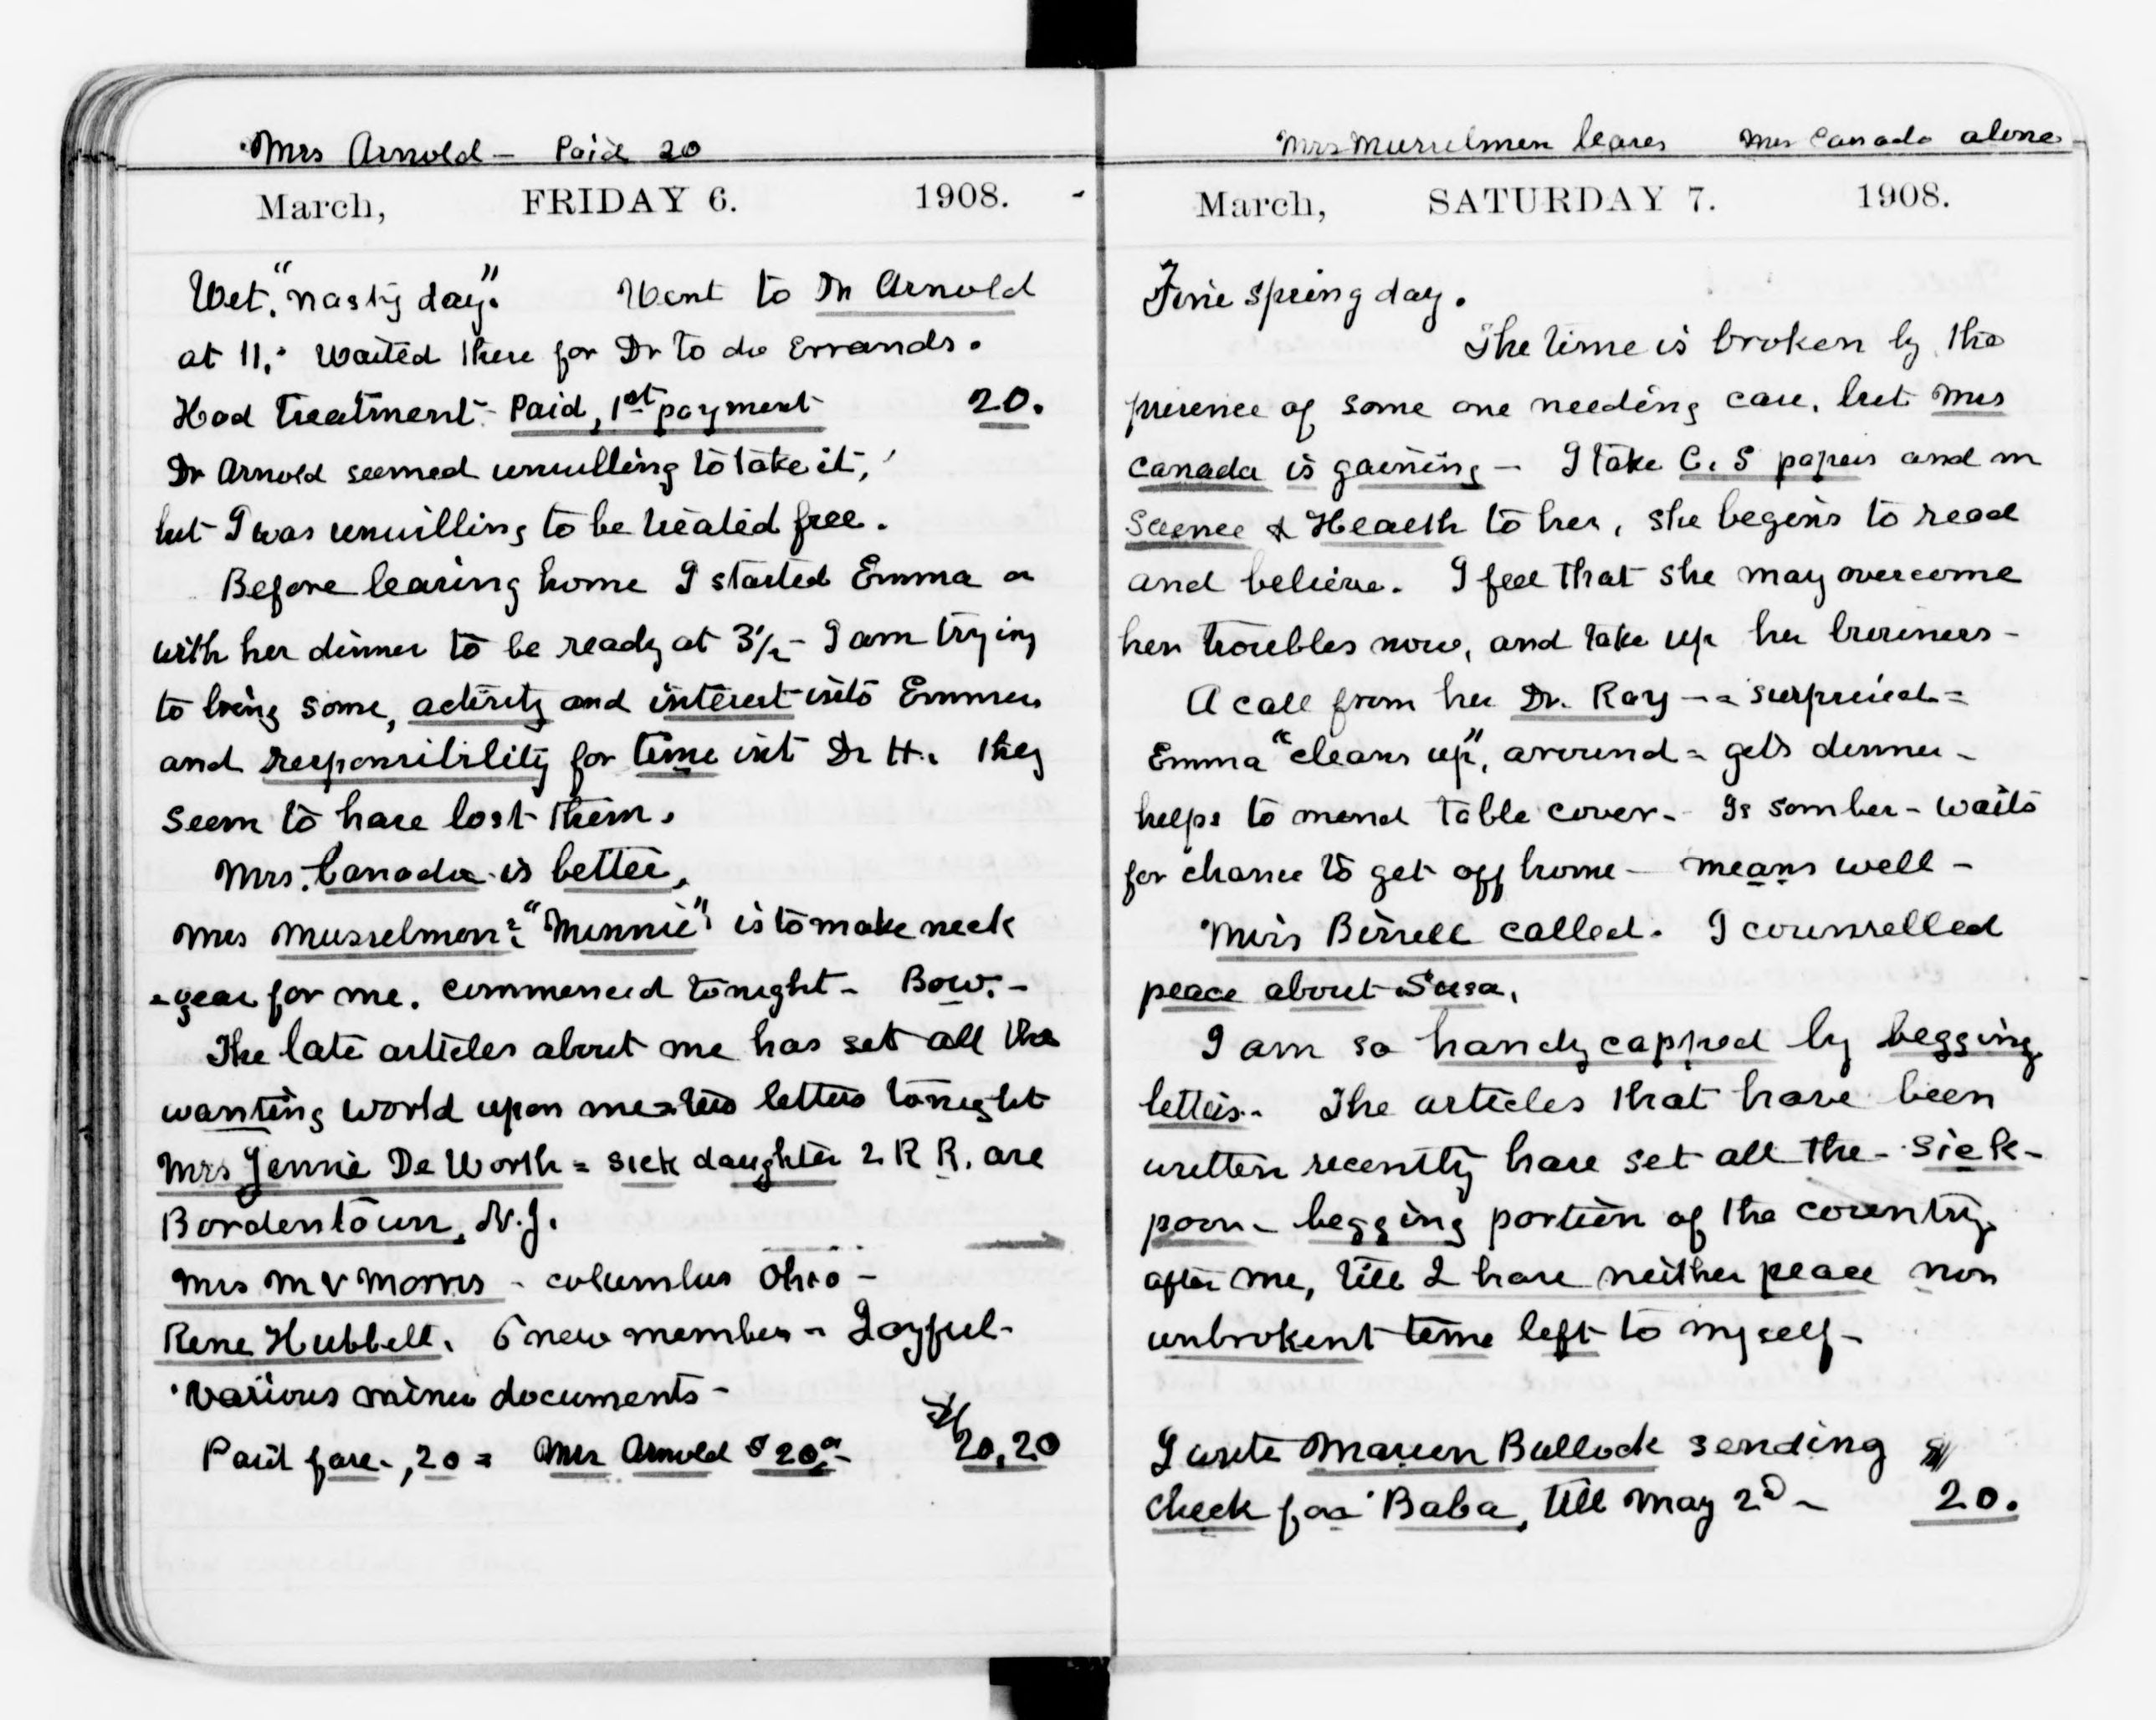 Mrs Arnold - Paid 20
March, FRIDAY 6. 1908.
Wet. "nasty day". Went to Dr Arnold
at 11. waited there for Dr to do Errands.
Had treatment - Paid, 1st payment 20.
Dr Arnold seemed unwilling to take it,
but I was unwilling to be treated free.
Before leaving home I started Emma
with her dinner to be ready at 3½ - I am trying
to bring some, activity and interest into Emma
and responsibility for time into Dr H. They
seem to have lost them.
Mrs. Canada is better.
Mrs Musselman = "Minnie" is to make neck
=gear for me. commenced tonight - Bow. -
The late articles about me has set all the
wanting world upon me = two letters tonight
Mrs Jennie De Worth = sick daughter 2 R R. are
Bordentown, N.J.
Mrs M V Morris - columbus Ohio -
Rene Hubbell. 6 new members - Joyful -
Various minor documents -
Paid fare - ,20 = Mrs Arnold $20.00 - $20,20
Mrs Musselman leaves Mrs Canada alone
March, SATURDAY 7. 1908.
Fine spring day.
The time is broken by the
presence of some one needing care, but Mrs
Canada is gaining - I take C. S papers and m
Science & Health to her, she begins to read
and believe. I feel that she may overcome
her troubles now, and take up her business -
A call from her Dr. Ray - = surprised =
Emma "cleans up", around = gets dinner -
helps to mend table cover - Is somber - waits
for chance to get off home - means well -
Miss Birrell called. I counselled
peace about Susa,
I am so handycapped by begging
letters. The articles that have been
written recently have set all the - sick -
poor - begging portion of the country
after me, till I have neither peace nor
unbrokent time left to myself -
I write Marion Bullock sending $
check for Baba, till May 2D - 20.